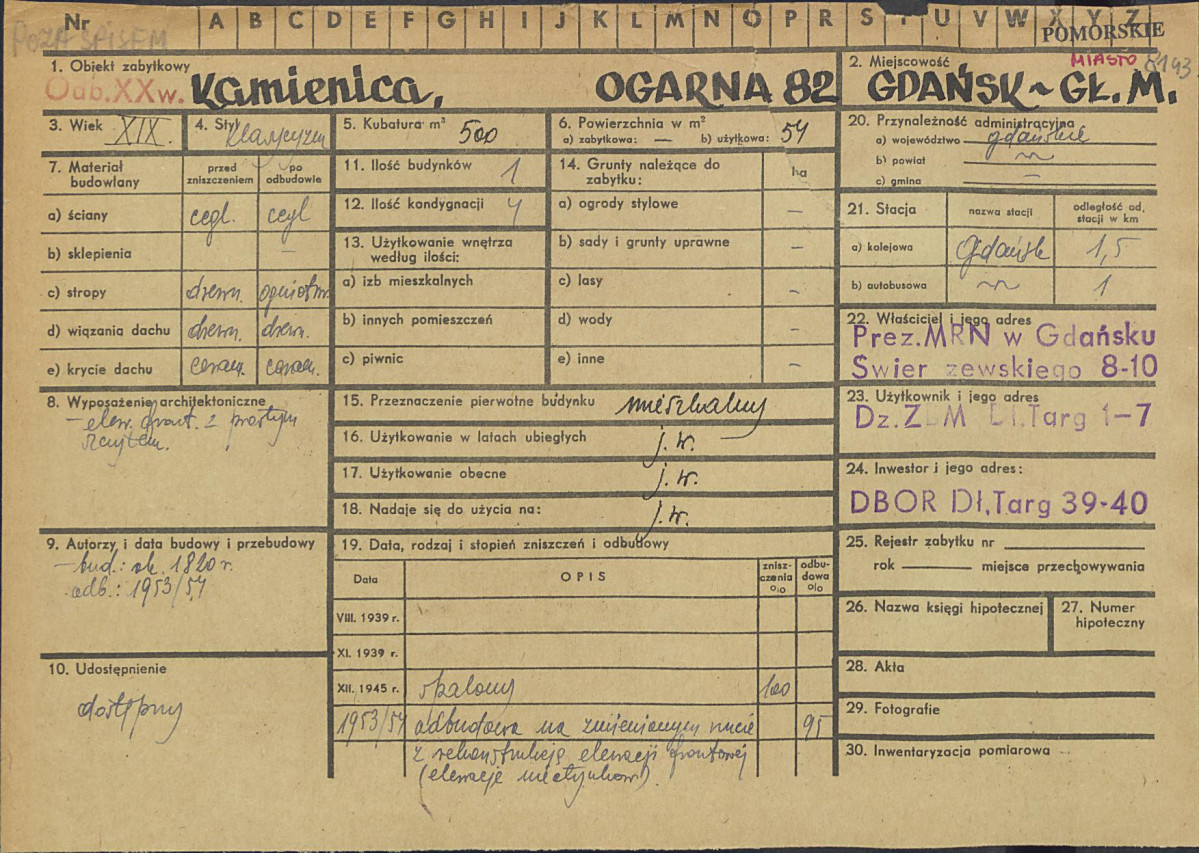 Nr A B C D E F G H I J K L M N O P R S T U V W X Y Z
POZA SPISEM
POMORSKIE
MIASTO 8193
1. Obiekt zabytkowy
Odb.XXw. Kamienica, OGARNA 82
2. Miejscowość
GDAŃSK ~ GŁ. M.
3. Wiek XIX.
4. Styl klasycyzm
5. Kubatura m³ 500
6. Powierzchnia w m²
a) zabytkowa: — b) użytkowa: 54
7. Materiał budowlany
przed zniszczeniem
po odbudowie
a) ściany cegl. cegl
b) sklepienia –
c) stropy drewn. ogniotrw.
d) wiązania dachu drewn. drewn.
e) krycie dachu ceram. ceram.
8. Wyposażenie architektoniczne
– elew. front. z prostym
szczytem.
9. Autorzy i data budowy i przebudowy
– bud.: ok. 1820 r.
odb.: 1953/54
10. Udostępnienie
dostępny
11. Ilość budynków 1
12. Ilość kondygnacji 4
13. Użytkowanie wnętrza
według ilości:
a) izb mieszkalnych
b) innych pomieszczeń
c) piwnic
14. Grunty należące do
zabytku: ha
a) ogrody stylowe –
b) sady i grunty uprawne –
c) lasy –
d) wody –
e) inne –
15. Przeznaczenie pierwotne budynku mieszkalny
16. Użytkowanie w latach ubiegłych j. w.
17. Użytkowanie obecne j. w.
18. Nadaje się do użycia na: j. w.
19. Data, rodzaj i stopień zniszczeń i odbudowy
Data OPIS zniszczenia o/o odbudowa o/o
VIII. 1939 r.
XI. 1939 r.
XII. 1945 r. spalony 100
1953/54 odbudowa na zmienionym rzucie 95
z rekonstrukcją elewacji frontowej
(elewacje nietynkow.)
20. Przynależność administracyjna
a) województwo gdańskie
b) powiat ~
c) gmina –
21. Stacja nazwa stacji odległość od stacji w km
a) kolejowa Gdańsk 1,5
b) autobusowa ~ 1
22. Właściciel i jego adres
Prez.MRN w Gdańsku
Swier zewskiego 8-10
23. Użytkownik i jego adres
Dz.Z M Dł.Targ 1-7
24. Inwestor i jego adres:
DBOR Dł,Targ 39-40
25. Rejestr zabytku nr
rok miejsce przechowywania
26. Nazwa księgi hipotecznej
27. Numer
hipoteczny
28. Akta
29. Fotografie
30. Inwentaryzacja pomiarowa